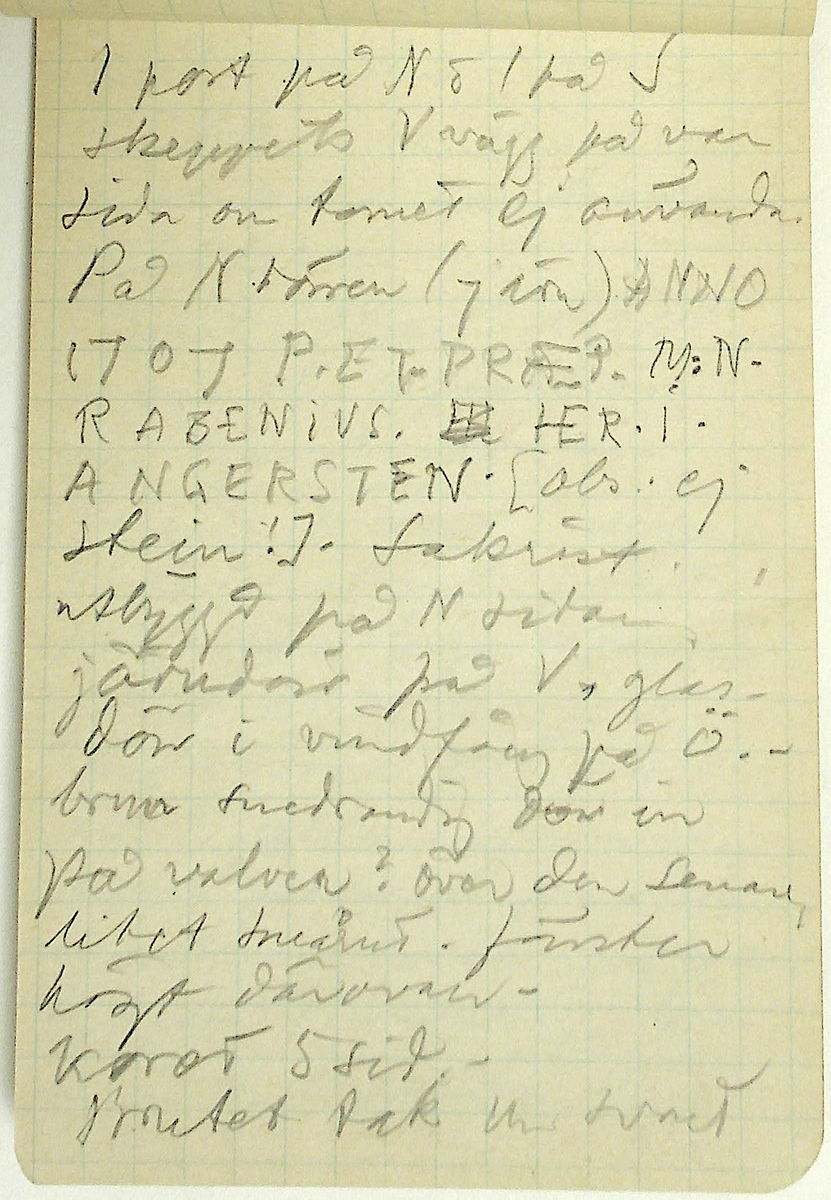 1 port på N o 1 på S
skeppets V vägg på var
sida om tornet ej använda.
På N dörren (järn) ANNO
1707 P. ET. PRÆP. M: N.
RABENIUS. HER. I.
ANGERSTEN. [obs. ej
stein!]. Sakrist.
utbyggd på N sidan,
järndörr på V, glas-
dörr i vindfång på Ö. -
brun snedrandig dörr in
på valven? över den senare,
litet snedrut. fönster
högt därovan -
Koret 5 sid. -
Brutet tak m. svart